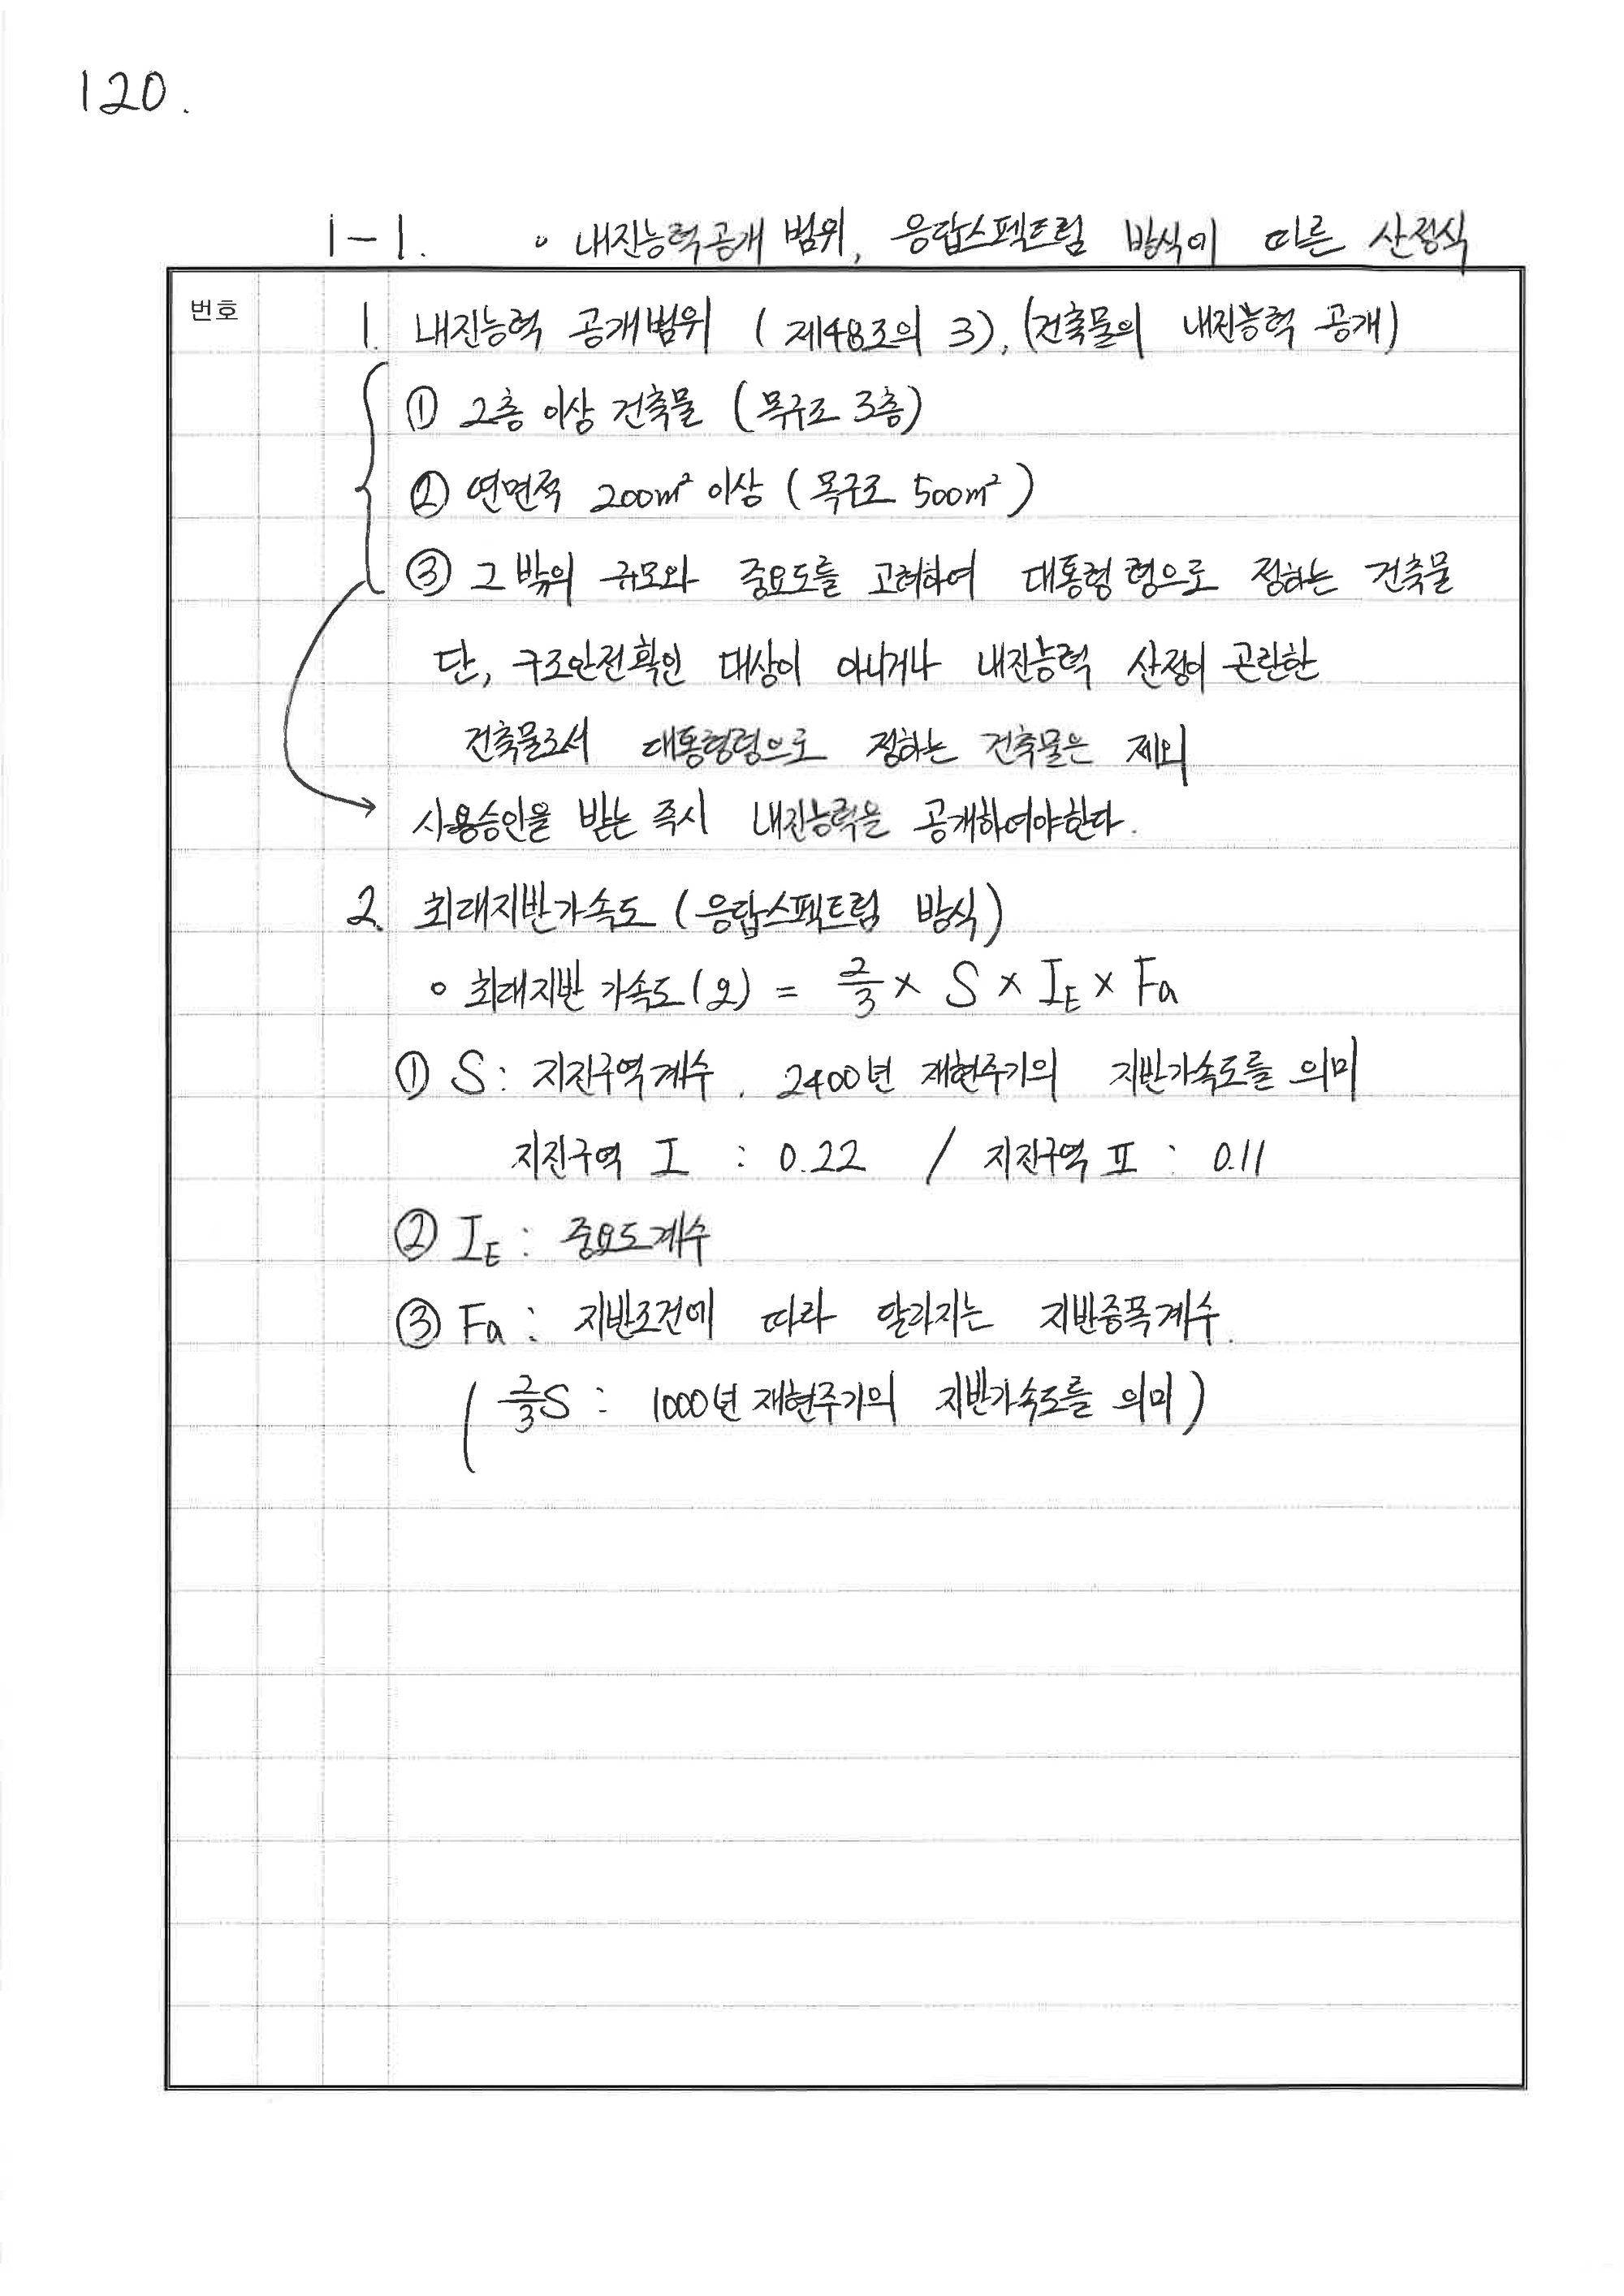 120.
1-1. ∘ 내진능력공개 범위, 응답스펙트럼 방식이 따른 산정식
번호
1. 내진능력 공개범위 (제48조의 3), (건축물의 내진능력 공개)
① 2층 이상 건축물 (목구조 3층)
② 연면적 200m² 이상 (목구조 500m²)
③ 그 밖의 규모와 중요도를 고려하여 대통령령으로 정하는 건축물
단, 구조안전확인 대상이 아니거나 내진능력 산정이 곤란한
건축물로서 대통령령으로 정하는 건축물은 제외
→ 사용승인을 받는 즉시 내진능력을 공개하여야한다.
2. 최대지반가속도 (응답스펙트럼 방식)
∘ 최대지반 가속도(g) = 2/3 × S × I_E × Fa
① S: 지진구역계수, 2400년 재현주기의 지반가속도를 의미
지진구역 I : 0.22 / 지진구역 II : 0.11
② I_E : 중요도계수
③ Fa : 지반조건에 따라 달라지는 지반증폭계수.
( 2/3S : 1000년 재현주기의 지반가속도를 의미)